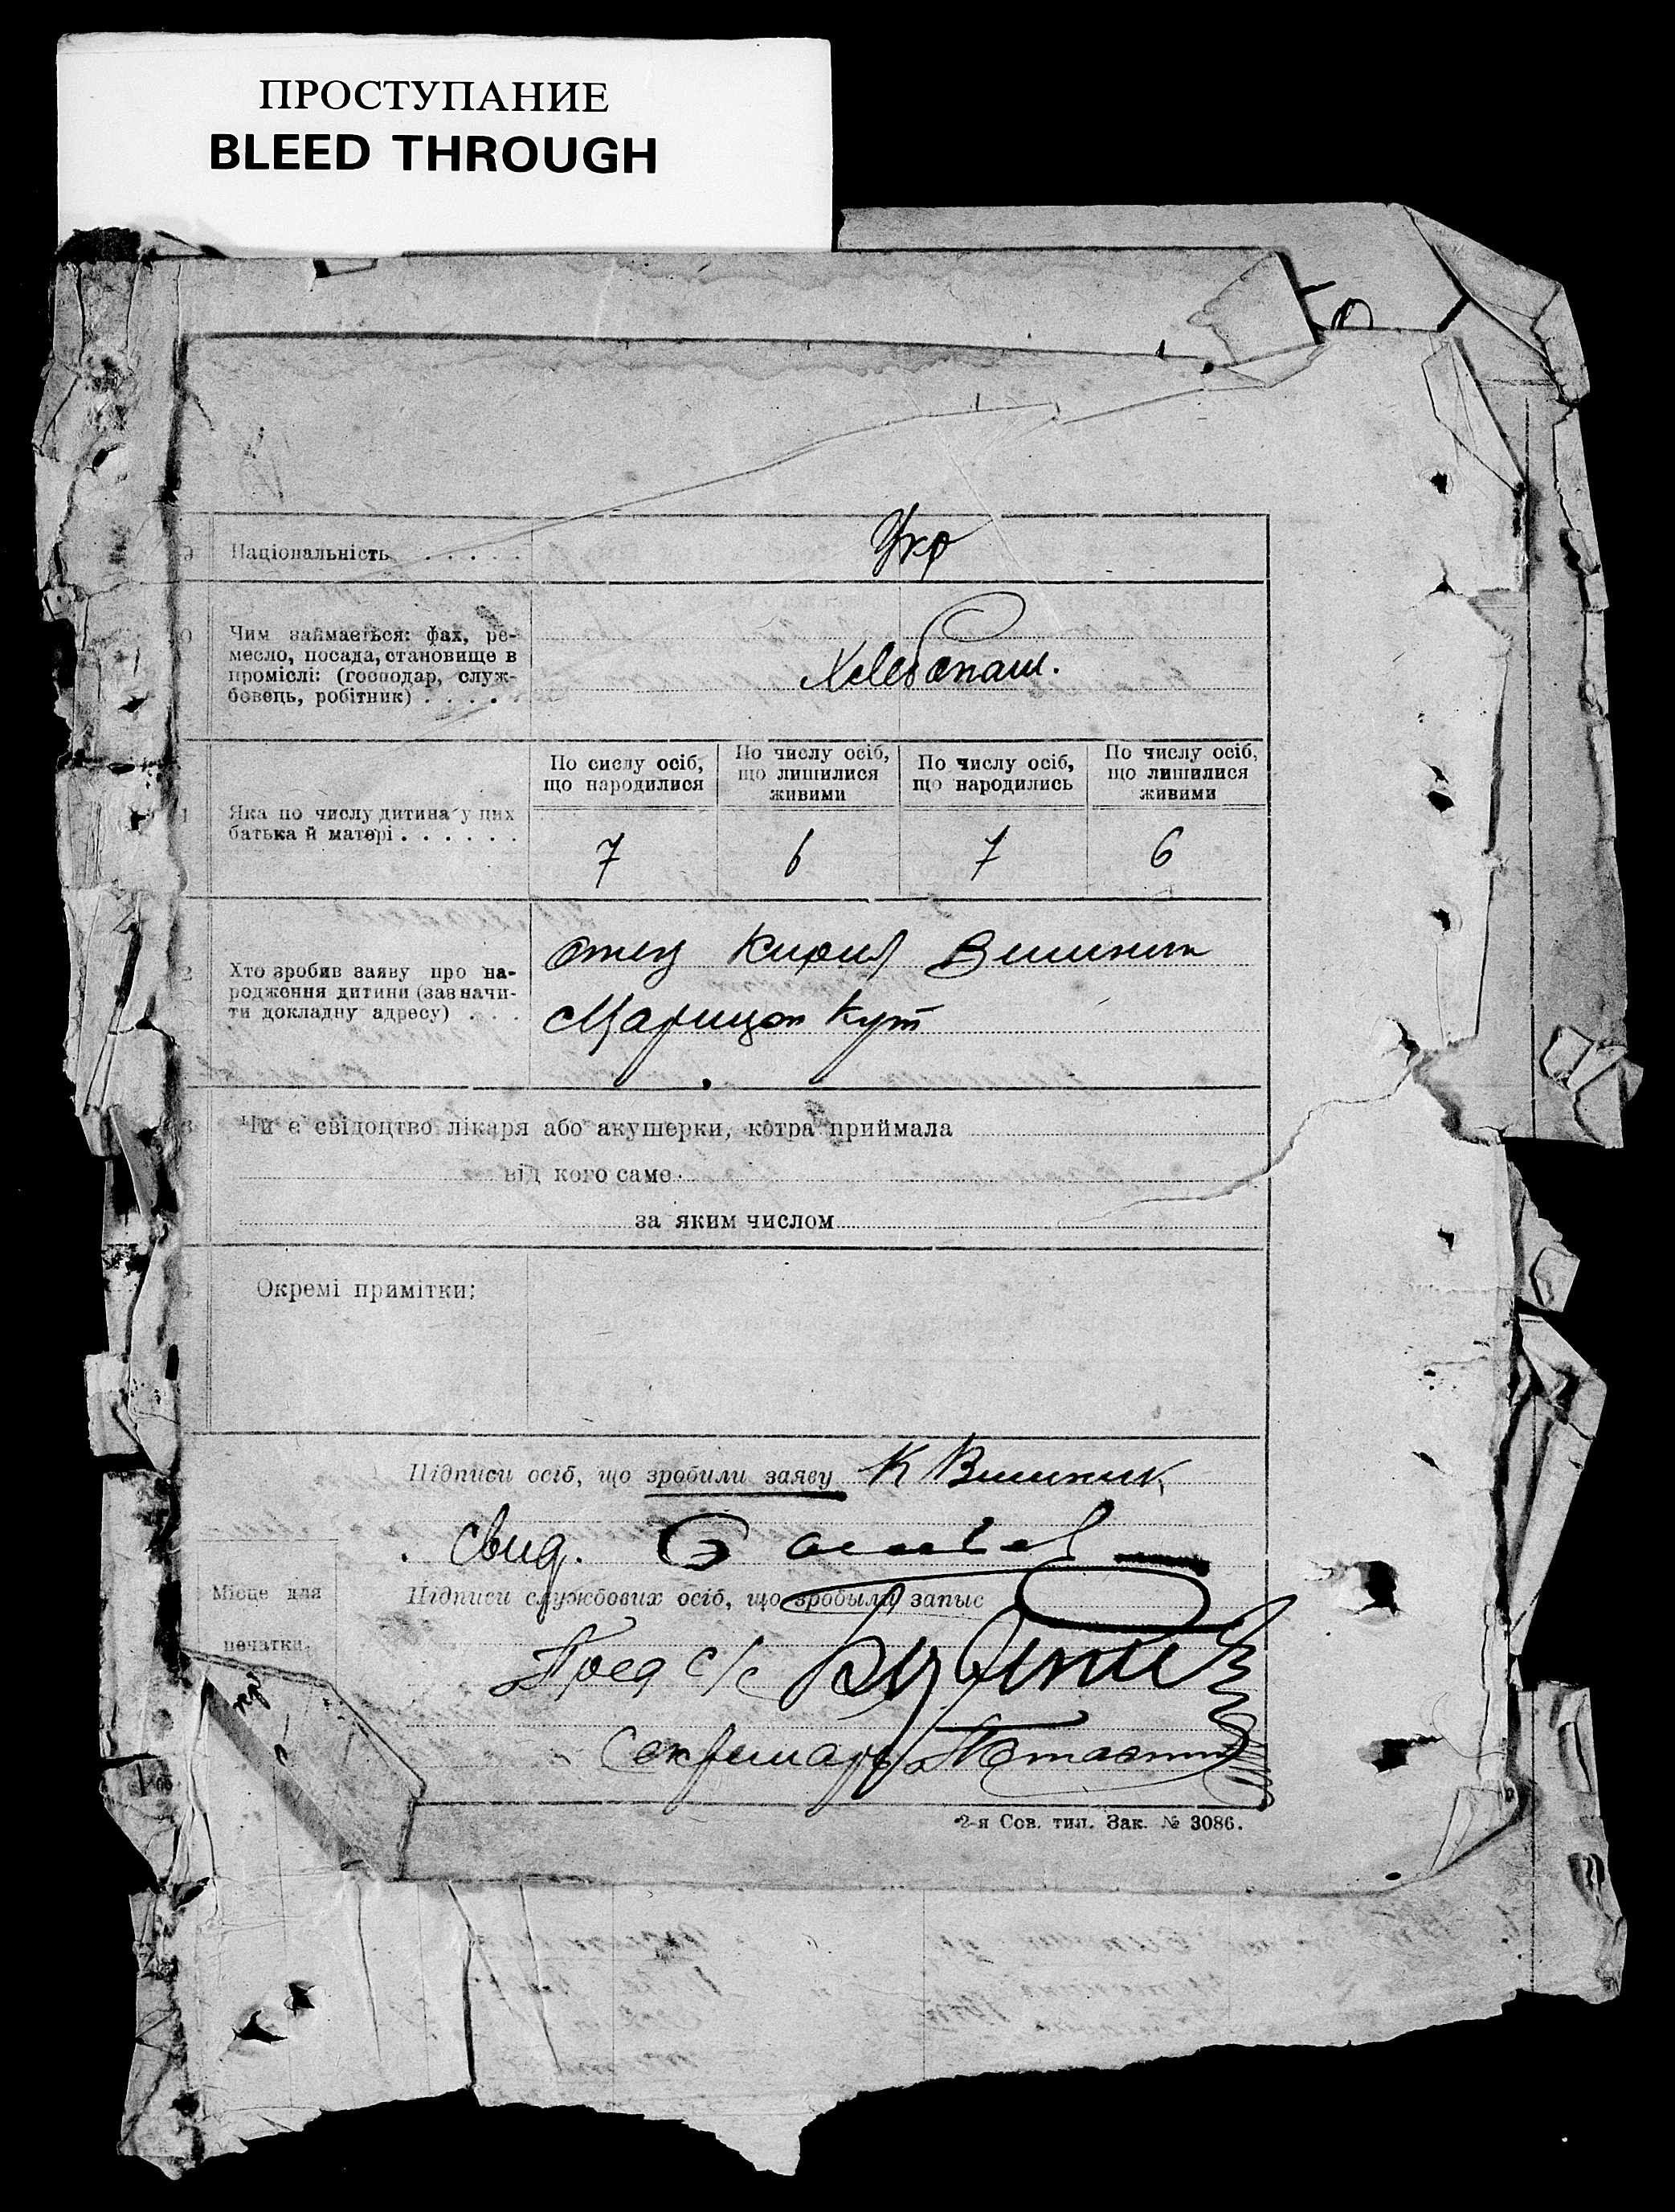 ПРОСТУПАНИЕ
BLEED THROUGH
9 Національність . . . . .
Укр
0 Чим займається: фах, ре-
месло, посада, становище в
проміслі: (господар, служ-
бовець, робітник) . . . .
Хлебопаш.
1 Яка по числу дитина у цих
батька й матері . . . . . .
По сислу осіб,
що народилися
По числу осіб,
що лишилися
живими
По числу осіб,
що народились
По числу осіб,
що лишилися
живими
7 6 7 6
2 Хто зробив заяву про на-
родження дитини (зазначи-
ти докладну адресу) . . .
отец Кирил Вишник
Марицон Кут
3 Чи є свідоцтво лікаря або акушерки, котра приймала
від кого саме
за яким числом
Окремі примітки:
Підписи осіб, що зробили заяву К Вишник
свид.
Підписи службових осіб, що зробыли запыс
Місце для
печатки
Пред с/с
Секретарь
2-я Сов. тип. Зак. № 3086.